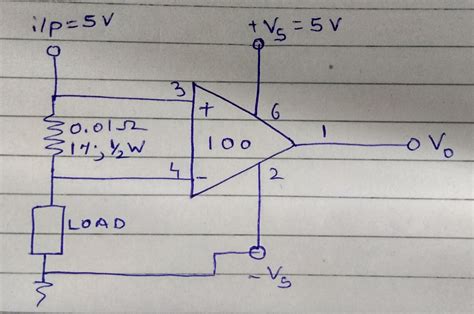 i/p = 5V
+Vs = 5V
3
+
6
0.01Ω
1%, ½W
100
1
Vo
4
-
2
LOAD
-Vs